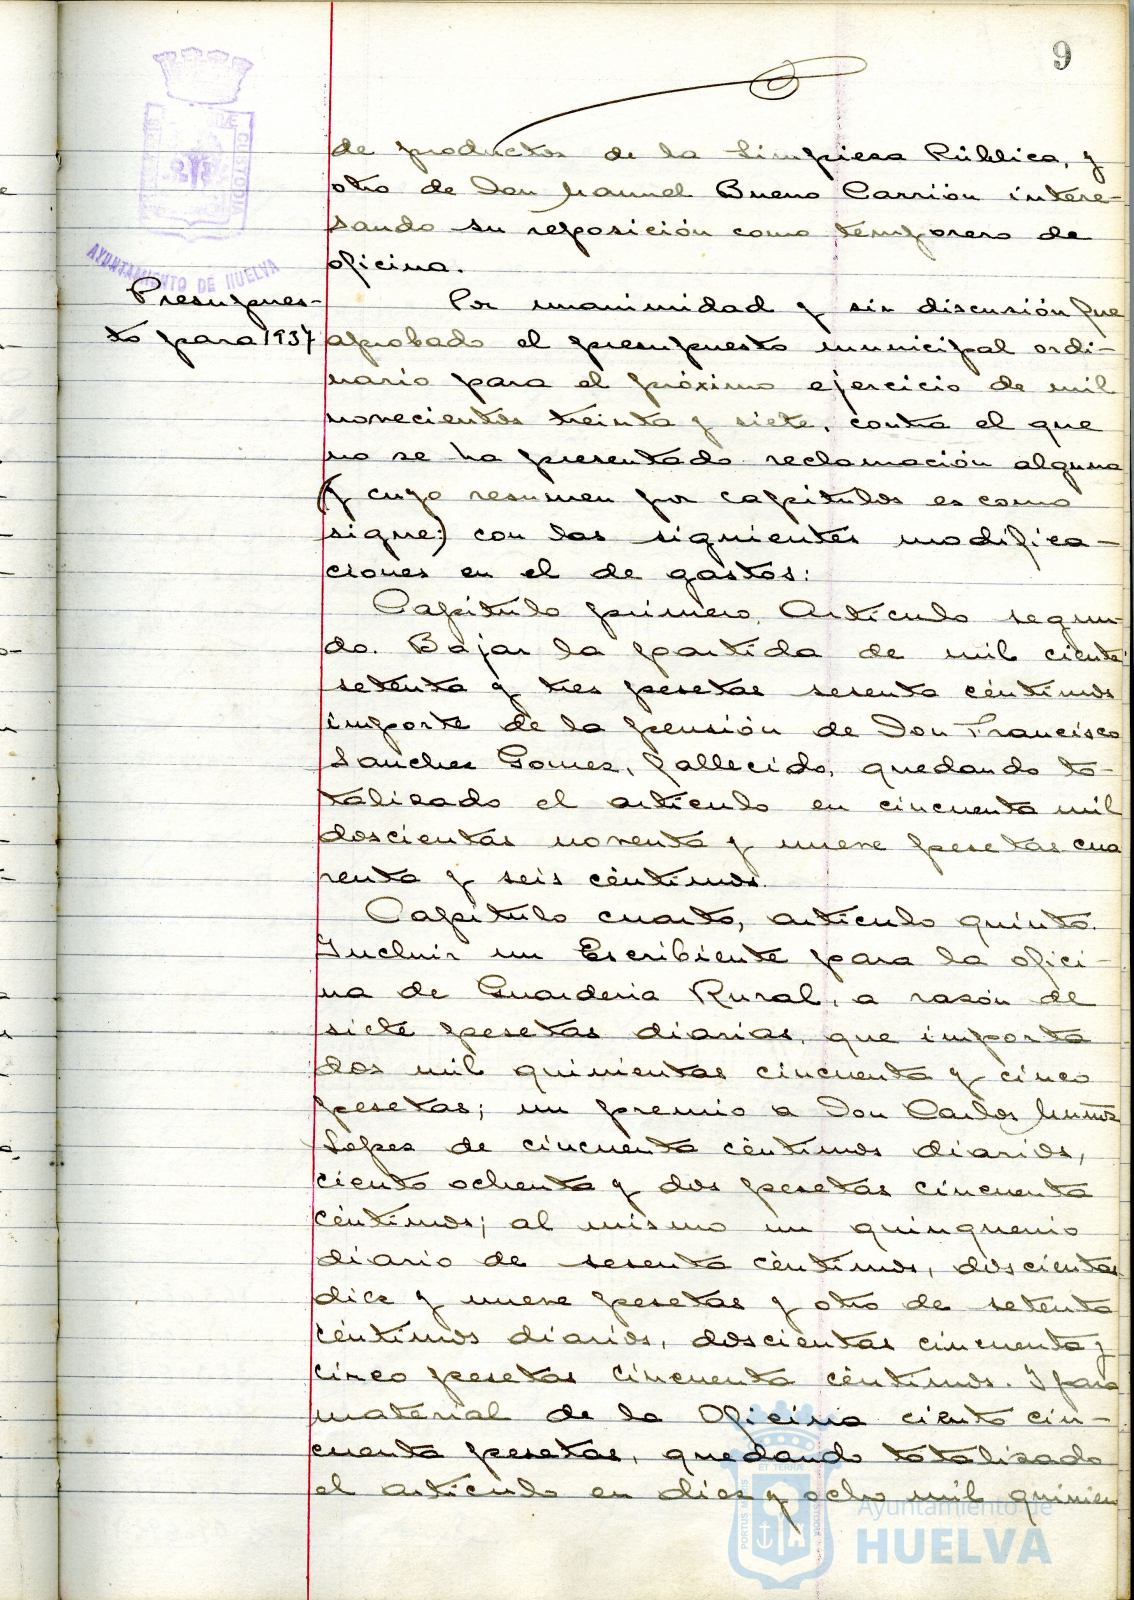 9
de productos de la Limpieza Pública, y
otro de Don Manuel Bueno Carrión intere-
sando su reposición como temporero de
oficina.
AYUNTAMIENTO DE HUELVA
CUSTODIA
Presupues-
to para 1937
Por unanimidad y sin discusión fue
aprobado el presupuesto municipal ordi-
nario para el próximo ejercicio de mil
novecientos treinta y siete, contra el que
no se ha presentado reclamación alguna
(y cuyo resumen por capítulos es como
sigue:) con las siguientes modifica-
ciones en el de gastos:
Capítulo primero, Artículo segun-
do. Bajar la partida de mil ciento
setenta y tres pesetas sesenta céntimos
importe de la pensión de Don Francisco
Sanchez Gomez, fallecido, quedando to-
talizado el artículo en cincuenta mil
doscientas noventa y nueve pesetas cua
renta y seis céntimos.
Capítulo cuarto, artículo quinto.
Incluir un Escribiente para la ofici-
na de Guarderia Rural, a razón de
siete pesetas diarias, que importa
dos mil quinientas cincuenta y cinco
pesetas; un premio a Don Carlos Muñoz
Lopez de cincuenta céntimos diarios,
ciento ochenta y dos pesetas cincuenta
céntimos; al mismo un quinquenio
diario de sesenta céntimos, doscientas
diez y nueve pesetas y otro de setenta
céntimos diarios, doscientas cincuenta y
cinco pesetas cincuenta céntimos. Y para
material de la Oficina ciento cin-
cuenta pesetas, quedando totalizado
el artículo en diez y ocho mil quinien
Ayuntamiento de
HUELVA